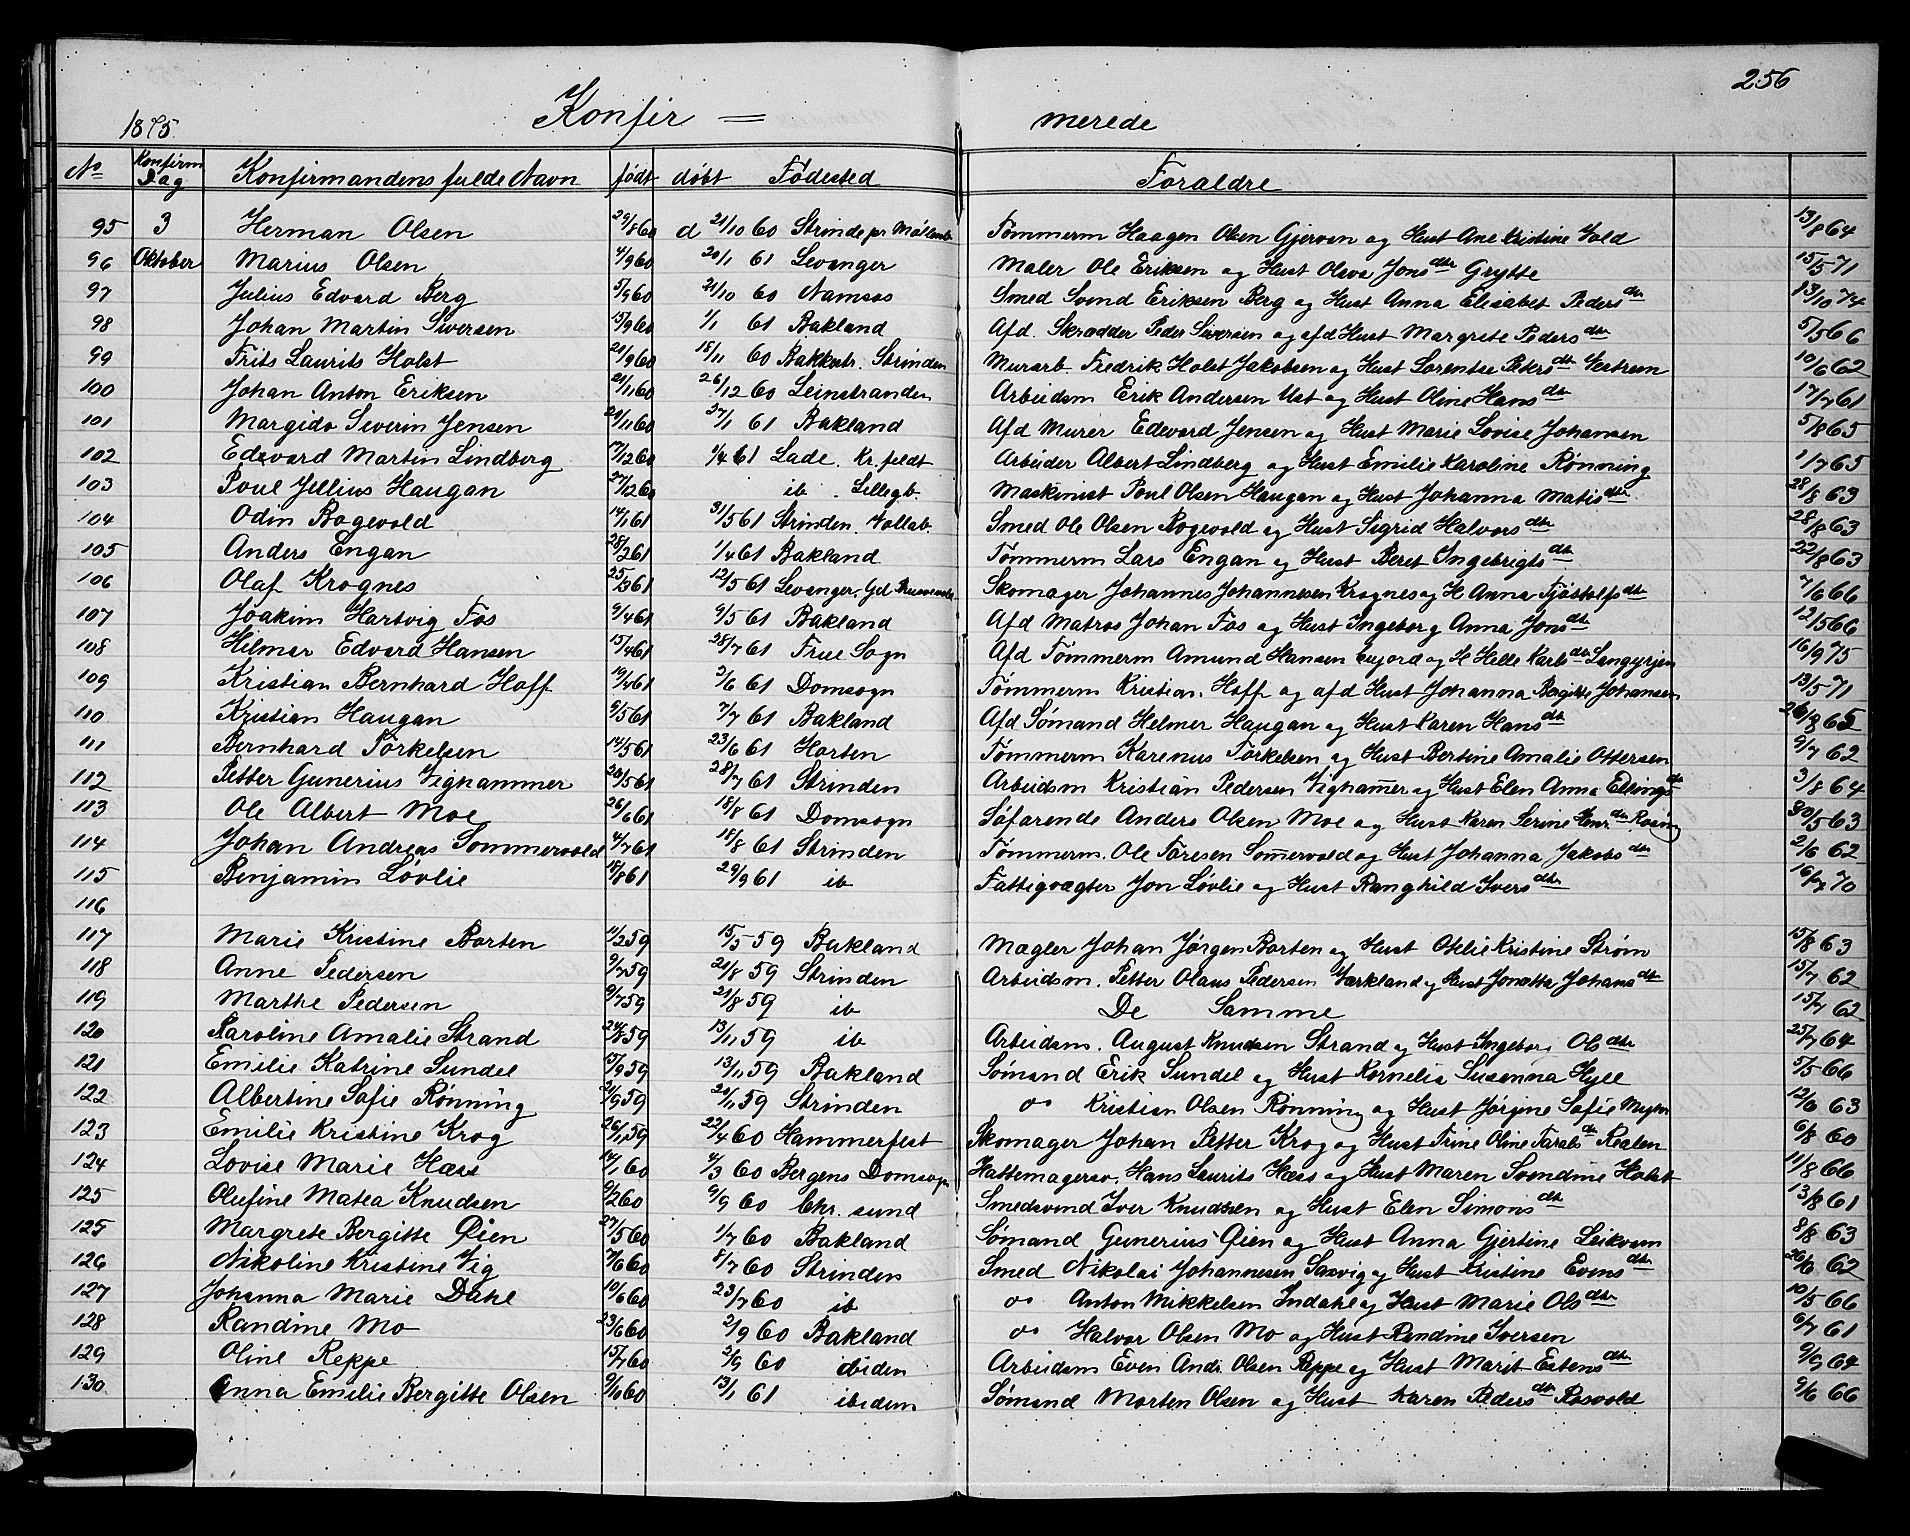 256
1875. Konfir = merede
No Konfirm Dag Konfirmandens fulde Navn født døbt Fødested Foraldre
95 3 Herman Olsen 29/8 60 d 21/10 60 Strinde pr Tømmerm Haagen Olsen Gjerven og Hust Ane Kristine Vold 13/8 64
96 Oktober Marius Olsen 4/9 60 20/1 61 Levanger Maler Ole Eriksen og Hust Oleva Jonsdtr Grytte 15/5 71
97 Julius Edvard Berg 5/9 60 21/10 60 Namsos Smed Svend Eriksen Berg og Hust Anna Elisabet Pedersdtr 13/10 74
98 Johan Martin Siversen 15/9 60 1/1 61 Bakland Afd. Skrædder Peder Siversen og afd Hust Margrete Pedersdtr 5/5 66
99 Frits Laurits Holst 21/9 60 18/11 60 Bakkestr. Strinden Murarb. Fredrik Holst Jakobsen og Hust Lorentse Petersdtr Vestrum 10/6 62
100 Johan Anton Eriksen 21/11 60 26/12 60 Leinstranden Arbeidsm Erik Andersen Ust og Hust Oline Hansdtr 17/7 61
101 Margido Severin Jensen 29/11 60 27/1 61 Bakland Afd Murer Edevard Jensen og Hust Marie Lovise Johansen 5/8 65
102 Edevard Martin Lindberg 17/12 60 1/4 61 Lade. Kr. feldt Arbeider Albert Lindberg og Hust Emilie Karoline Rønning 1/7 65
103 Poul Julius Haugan 27/12 60 ib . Lillegb. Maskinist Poul Olsen Haugan og Hust Johanna Matisdtr 28/8 63
104 Odin Bogevold 14/1 61 31/5 61 Strinden. Vollab. Smed Ole Olsen Bogevold og Hust Sigrid Halvorsdtr 28/8 63
105 Anders Engan 28/2 61 1/4 61 Bakland Tømmerm Lars Engan og Hust Beret Ingebrigtsdtr 22/8 63
106 Olaf Krognes 25/3 61 12/5 61 Levanger, Gd Skomager Johannes Johannesen Krognes og H Anna Tjøstolfsdtr 7/6 66
107 Joakim Hartvig Fos 9/4 61 9/5 61 Bakland Afd Matros Johan Fos og Hust Ingeborg Anna Jonsdtr 12/5 66
108 Hilmar Edvard Hansen 15/4 61 28/7 61 Frue Sogn Afd Tømmerm Amund Hansen og H Helle Karlsdtr Langyrjen 16/9 75
109 Kristian Bernhard Hoff 19/4 61 2/6 61 Domsogn Tømmerm Kristian. Hoff og afd Hust Johanna Birgitte Johansen 13/5 71
110 Kristian Haugan 9/5 61 7/7 61 Bakland Afd Sømand Helmer Haugan og Hust Karen Hansdtr 26/8 65
111 Bernhard Torkelsen 14/5 61 23/6 61 Horten Tømmerm Karenus Torkelsen og Hust Bertine Amalie Ottersen 9/7 62
112 Petter Gunerius Vighammer 20/5 61 28/7 61 Strinden Arbeidsm Kristian Pedersen Vighamer og Hust Elen Anna Ellingsdtr 3/8 64
113 Ole Albert Moe 26/6 61 18/8 61 Domsogn Søfarende Anders Olsen Moe og Hust Karen Serine Henr.dtr Rosing 30/5 63
114 Johan Andreas Sommervold 4/7 61 18/8 61 Strinden Tømmerm. Ole Toresen Somervold og Hust Johanna Jakobsdtr 2/6 62
115 Benjamin Løvlie 18/8 61 29/9 61 ib Fattigvægter Jon Løvlie og Hust Ranghild Iversdtr 16/7 70
116
117 Marie Kristine Borten 11/2 59 15/5 59 Bakland Mægler Johan Jørgen Borten og Hust Otelie Kristine Strøm 15/8 63
118 Anne Pedersen 9/7 59 21/8 59 Strinden Arbeidsm. Petter Olaus Pedersen Værkland og Hust Jonetta Johansdtr 15/7 62
119 Marthe Pedersen 9/7 59 21/8 59 ib De Samme 15/7 62
120 Paroline Amalie Strand 24/8 59 13/11 59 ib Arbeidsm. August Knudsen Strand og Hust Ingebor. Olsdtr 25/7 64
121 Emilie Katrine Sundel 15/9 59 13/11 59 Bakland Sømand Erik Sundel og Hust Kornelia Susanna Hyll 5/5 66
122 Albertine Sofie Rønning 21/9 59 20/11 59 Strinden do Kristian Olsen Rønning og Hust Jørgine Sofie Myhr 12/6 63
123 Emilie Kristine Krog 26/11 59 22/4 60 Hammerfest Skomager Johan Petter Krog og Hust Trine Oline Tarabsdtr Realen 6/8 60
124 Lovise Marie Hæss 14/1 60 4/3 60 Bergens Domsogn Hattemagersv. Hans Laurits Hæss og Hust Maren Svendine Holst 11/8 66
125 Olefine Matea Knudsen 9/2 60 9/9 60 Chr. sund Smedsvend Iver Knudsen og Hust Elen Simonsdtr 13/8 61
125 Margrete Bergitte Øien 27/5 60 1/7 60 Bakland Sømand Gunerius Øien og Hust Anna Gjertine Leikvam 8/8 63
126 Nikoline Kristine Vig 7/6 60 8/7 60 Strinden Smed Nikolai Johannesen Saxvig og Hust Kristine Evensdtr 26/6 62
127 Johanna Marie Dahl 10/6 60 23/7 60 ib do Anton Mikkelsen Indahl og Hust Marie Olsdtr 10/5 66
128 Randine Mo 23/6 60 2/9 60 Bakland do Halvor Olsen Mo og Hust Randine Iversen 6/7 61
129 Oline Reppe 15/7 60 2/9 60 ibiden Arbeidsm Even Andr. Olsen Reppe og Hust Marit Estensdtr 9/9 64
130 Anna Emilie Bergitte Olsen 9/10 60 13/1 61 ibidem Sømand Morten Olsen og Hust Karen Pedersdtr Rosvold 9/6 66